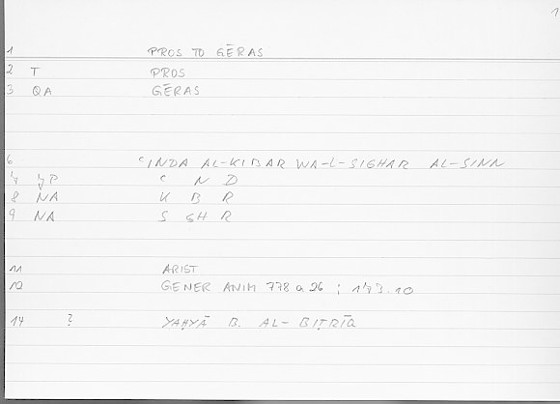 1
1 PROS TO GĒRAS
2 T PROS
3 QA GĒRAS
6 ʿINDA AL-KIBAR WA-L-SIGHAR AL-SINN
7 ʿ N D
8 NA K B R
9 NA S GH R
11 ARIST.
12 GENER ANIM 778 a 26 ; 173.10
14 ? YAḤYĀ B. AL-BIṬRĪQ